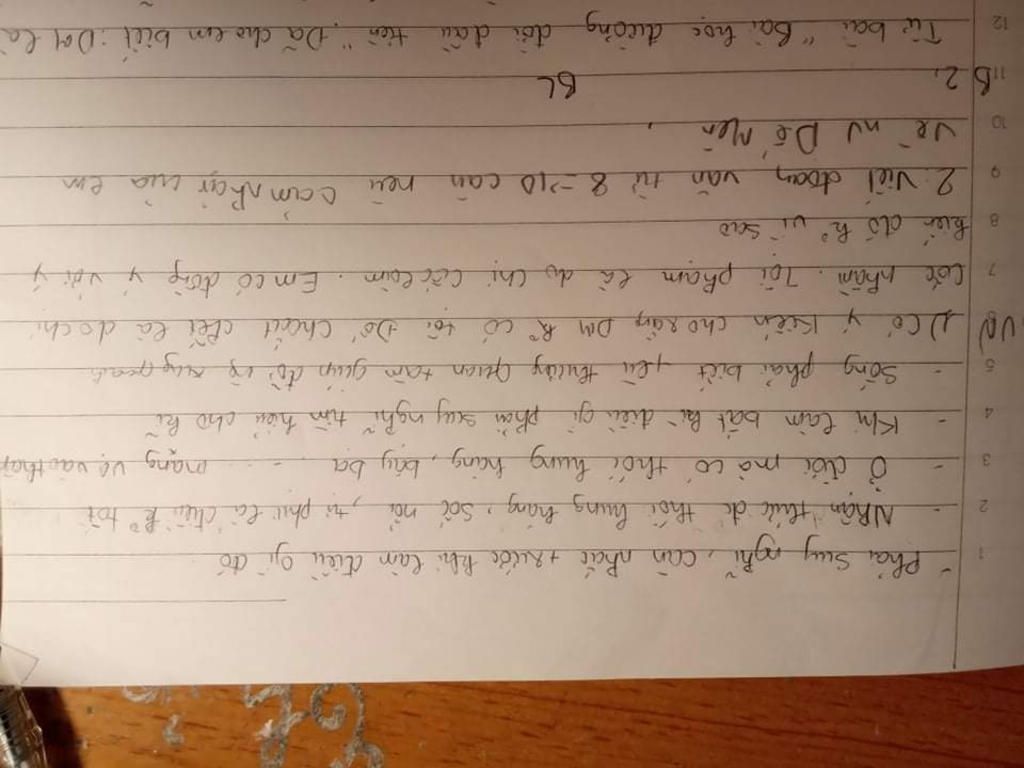 - Phải suy nghĩ, cân nhắc trước khi làm điều gì đó
- Nhận thức dc thói hung hăng, sốc nổi, tự phụ là điều k° tốt
- Ở đời mà có thói hung hăng, bậy bạ ... mạng vẹ vào thâ
- Khi làm bất kì điều gì phải suy nghĩ tìm hiểu cho kĩ
- Sống phải biết yêu thương quan tâm giúp đỡ vs xung quanh
VD/ 1) Có ý kiến cho rằng DM k° có tội Dế choắt chết là do chị
Cốc nhầm. Tội phạm là do chị Cốc làm. Em có đồng ý với ý
kiến đó k° vì sao
2. Viết đoạn văn từ 8 → 10 câu nêu cảm nhận của em
về nv Dế Mèn.
BL
B 2,
Từ bài "Bài học đường đời đầu tiên". Đã cho em biết: DM là
1
2
3
4
5
7
8
9
10
11
12